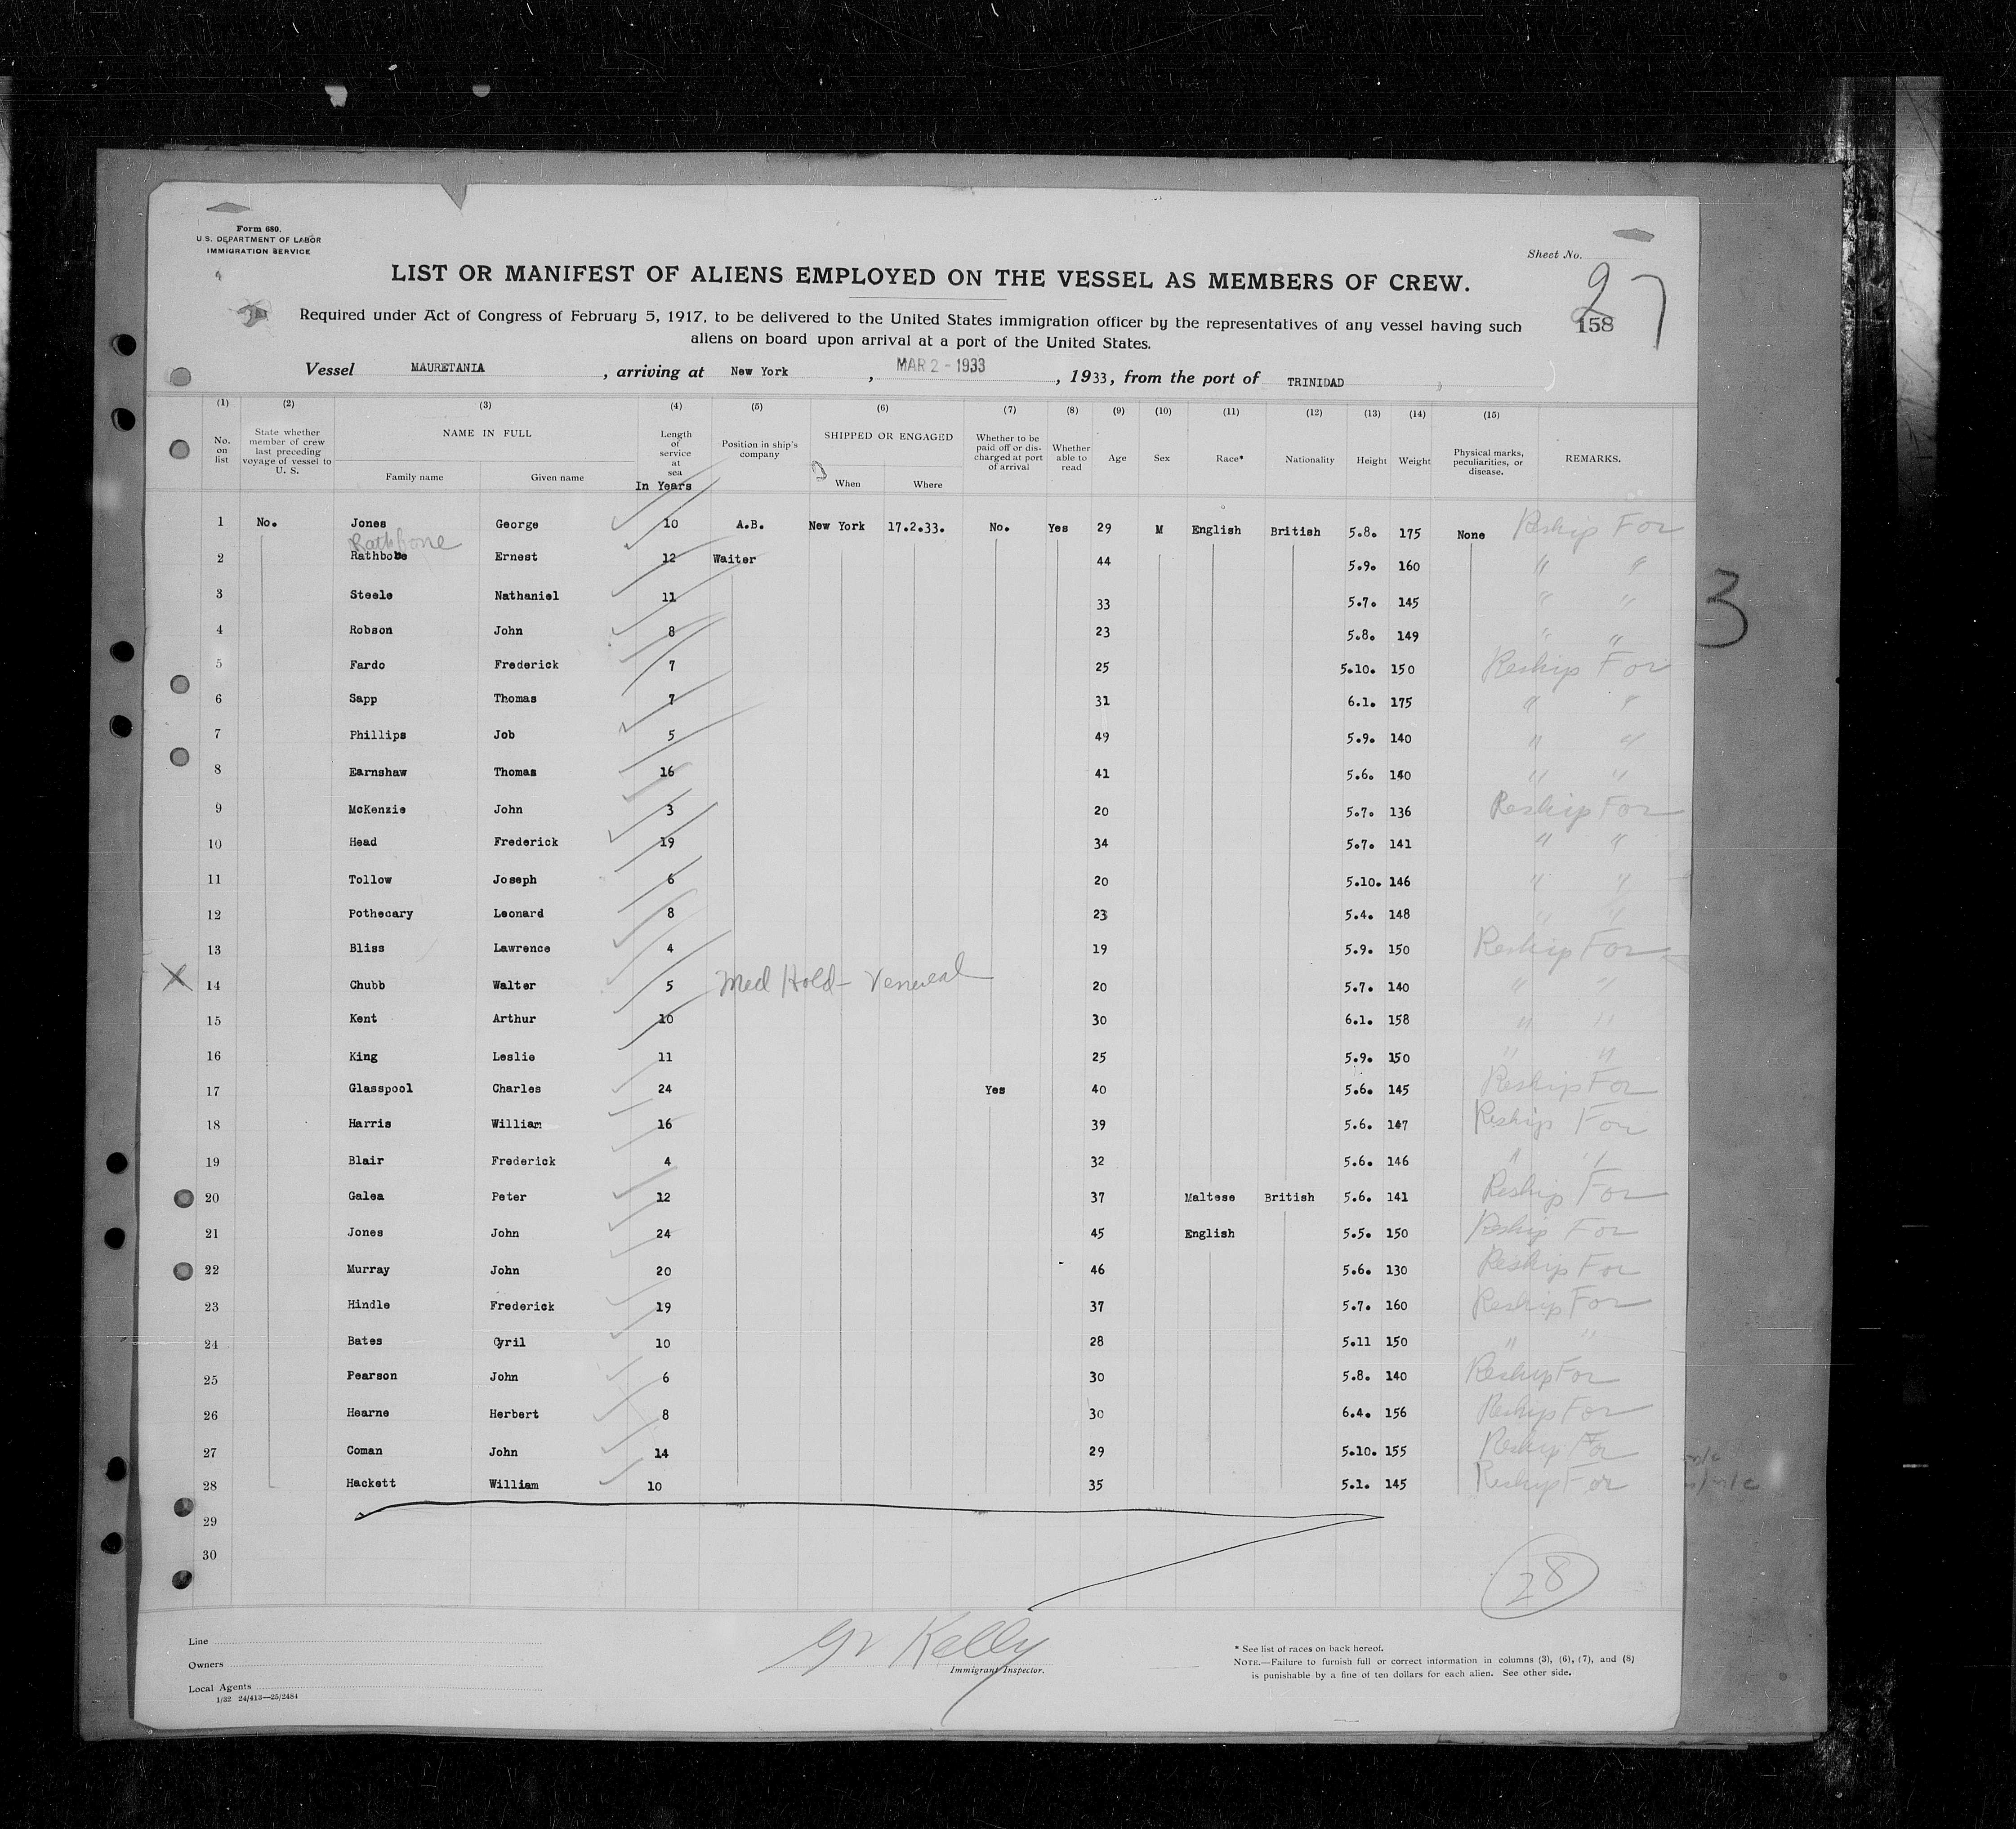 Form 680.
U.S. DEPARTMENT OF LABOR
IMMIGRATION SERVICE
Sheet No.
27
158
LIST OR MANIFEST OF ALIENS EMPLOYED ON THE VESSEL AS MEMBERS OF CREW.
Required under Act of Congress of February 5, 1917, to be delivered to the United States immigration officer by the representatives of any vessel having such
aliens on board upon arrival at a port of the United States.
Vessel MAURETANIA , arriving at New York , MAR 2 - 1933 , 1933, from the port of TRINIDAD
(1) (2) (3) (4) (5) (6) (7) (8) (9) (10) (11) (12) (13) (14) (15)
No. on list State whether member of crew last preceding voyage of vessel to U. S. NAME IN FULL Family name Given name Length of service at sea In Years Position in ship's company SHIPPED OR ENGAGED When Where Whether to be paid off or discharged at port of arrival Whether able to read Age Sex Race* Nationality Height Weight Physical marks, peculiarities, or disease. REMARKS.
1 No. Jones George 10 A.B. New York 17.2.33. No. Yes 29 M English British 5.8. 175 None Reship For
Rathbone
2 Rathbone Ernest 12 Waiter 44 5.9. 160 " "
3 Steele Nathaniel 11 33 5.7. 145 " "
4 Robson John 8 23 5.8. 149 " "
5 Fardo Frederick 7 25 5.10. 150 Reship For
6 Sapp Thomas 7 31 6.1. 175 " "
7 Phillips Job 5 49 5.9. 140 " "
8 Earnshaw Thomas 16 41 5.6. 140 " "
9 McKenzie John 3 20 5.7. 136 Reship For
10 Head Frederick 19 34 5.7. 141 " "
11 Tollow Joseph 6 20 5.10. 146 " "
12 Pothecary Leonard 8 23 5.4. 148 " "
13 Bliss Lawrence 4 19 5.9. 150 Reship For
X 14 Chubb Walter 5 Med Hold - Venereal 20 5.7. 140 " "
15 Kent Arthur 10 30 6.1. 158 " "
16 King Leslie 11 25 5.9. 150 " "
17 Glasspool Charles 24 Yes 40 5.6. 145 Reship For
18 Harris William 16 39 5.6. 147 Reship For
19 Blair Frederick 4 32 5.6. 146 " "
20 Galea Peter 12 37 Maltese British 5.6. 141 Reship For
21 Jones John 24 45 English 5.5. 150 Reship For
22 Murray John 20 46 5.6. 130 Reship For
23 Hindle Frederick 19 37 5.7. 160 Reship For
24 Bates Cyril 10 28 5.11 150 " "
25 Pearson John 6 30 5.8. 140 Reship For
26 Hearne Herbert 8 30 6.4. 156 Reship For
27 Coman John 14 29 5.10. 155 Reship For
28 Hackett William 10 35 5.1. 145 Reship For
29
30
3
28
Line
Owners
Local Agents
1/32 24/413—25/2484
Kelly
Immigrant Inspector.
* See list of races on back hereof.
NOTE.—Failure to furnish full or correct information in columns (3), (6), (7), and (8)
is punishable by a fine of ten dollars for each alien. See other side.